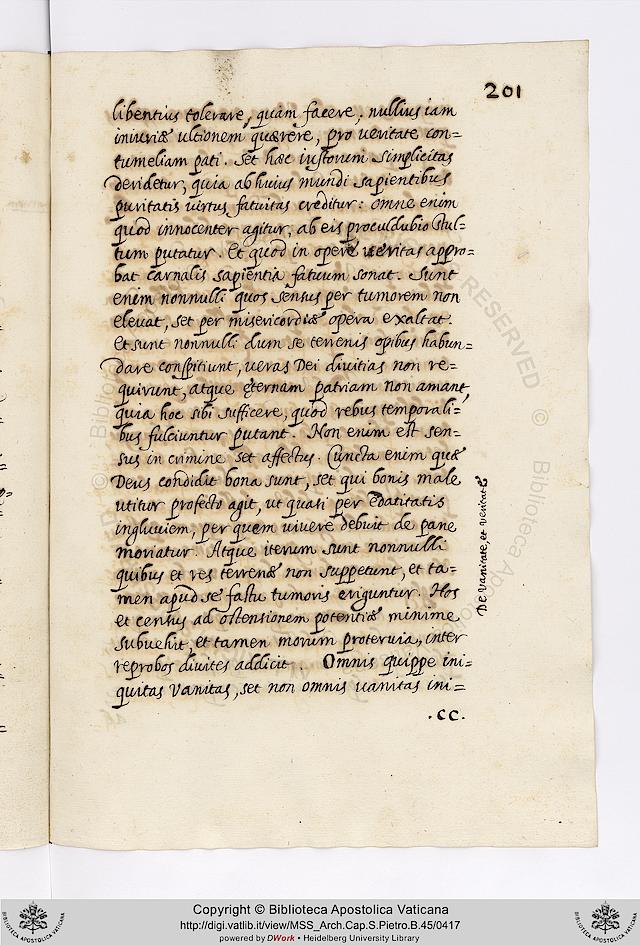 201
libentius tolerare, quam facere; nullius iam
iniuriæ ultionem quærere, pro veritate con=
tumeliam pati. Set hæc iustorum simplicitas
deridetur, quia ab huius mundi sapientibus
puritatis virtus fatuitas creditur: omne enim
quod innocenter agitur, ab eis proculdubio stul=
tum putatur. Et quod in opere veritas appro=
bat carnalis sapientia fatuum sonat. Sunt
enim nonnulli quos sensus per tumorem non
elevat, set per misericordiæ opera exaltat.
Et sunt nonnulli dum se terrenis opibus habun=
dare conspitiunt, veras Dei divitias non re=
quirunt, atque ęternam patriam non amant,
quia hoc sibi sufficere, quod rebus temporali=
bus fulciuntur putant. Non enim est sen=
sus in crimine set affectus. Cuncta enim quæ
Deus condidit bona sunt, set qui bonis male
utitur profecto agit, ut quasi per edatitatis
ingluviem, per quem vivere debuit de pane
moriatur. Atque iterum sunt nonnulli
quibus et res terrenæ non suppetunt, et ta=
men apud se fastu tumoris eriguntur. Hos
et census ad ostensionem potentiæ minime
subvehit, et tamen morum protervia, inter
reprobos divites addicit. Omnis quippe ini=
quitas vanitas, set non omnis vanitas ini=
.CC.
De vanitate, et veritate
Copyright © Biblioteca Apostolica Vaticana
http://digi.vatlib.it/view/MSS_Arch.Cap.S.Pietro.B.45/0417
powered by DWork • Heidelberg University Library